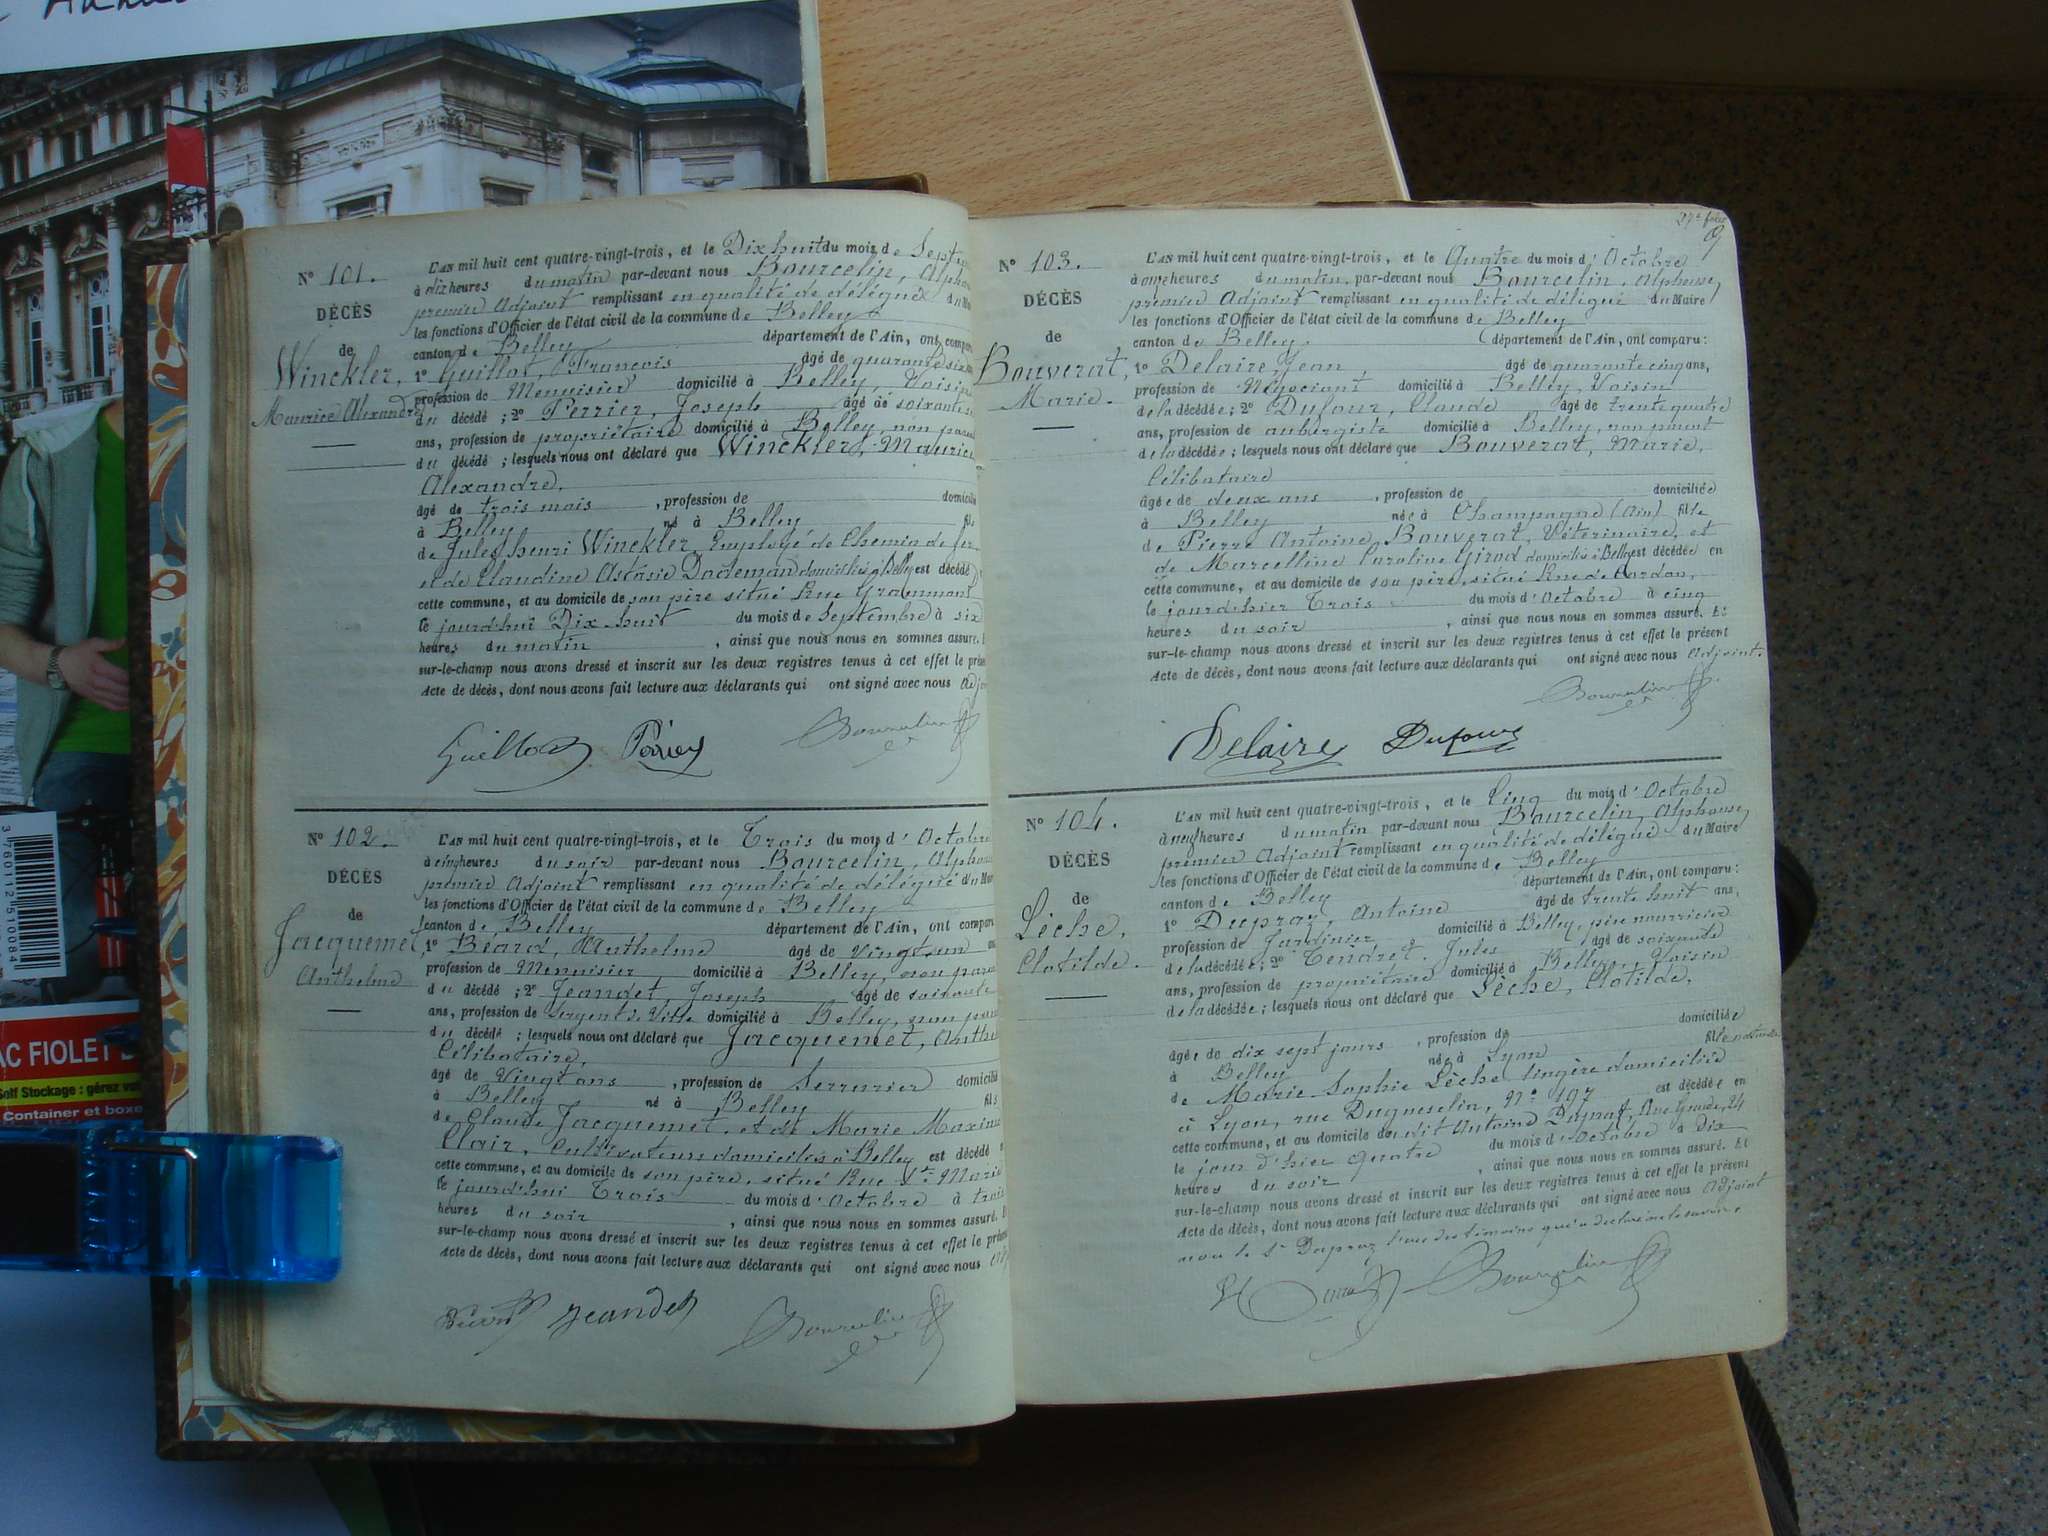 N° 101.
DÉCÈS
de
Winckler,
Maurice Alexandre
L'AN mil huit cent quatre-vingt-trois, et le Dix huit du mois de Septe
à dix heures du matin par-devant nous Bourcelin, Alpho
premier Adjoint remplissant en qualité de délégué du Ma
les fonctions d'Officier de l'état civil de la commune de Belley
canton de Belley département de l'Ain, ont compar
1° Guillot, François âgé de quarante six
profession de Menuisier domicilié à Belley, Voisin
du décédé ; 2° Perrier, Joseph âgé de soixante
ans, profession de propriétaire domicilié à Belley, non paren
du décédé ; lesquels nous ont déclaré que Winckler, Maurice
Alexandre.
âgé de trois mois , profession de domicilié
à Belley né à Belley fils
de Jules henri Winckler Employé de Chemin de fer
et de Claudine Astasie Dodeman domiciliés à Belley est décédé
cette commune, et au domicile de son père situé Rue Grammont
le jourd'hui Dix huit du mois de Septembre à six
heures du matin , ainsi que nous nous en sommes assuré. E
sur-le-champ nous avons dressé et inscrit sur les deux registres tenus à cet effet le prése
Acte de décès, dont nous avons fait lecture aux déclarants qui ont signé avec nous Adj
Guillot Perrier Bourcelin
N° 102.
DÉCÈS
de
Jacquemet,
Anthelme
L'AN mil huit cent quatre-vingt-trois, et le Trois du mois d'Octobre
à cinq heures du soir par-devant nous Bourcelin, Alphons
premier Adjoint remplissant en qualité de délégué du Mair
les fonctions d'Officier de l'état civil de la commune de Belley
canton de Belley département de l'Ain, ont comparu
1° Béard, Anthelme âgé de vingt un ans
profession de Menuisier, domicilié à Belley, non paren
du décédé ; 2° Jeandet, Joseph âgé de soixante
ans, profession de Sergent de Ville domicilié à Belley, non paren
du décédé ; lesquels nous ont déclaré que Jacquemet, Anthe
Célibataire,
âgé de vingt ans , profession de Serrurier domicilié
à Belley né à Belley fils
de Claude Jacquemet, et de Marie Maxim
Clair, Cultivateurs domiciliés à Belley est décédé e
cette commune, et au domicile de son père, situé Rue Ste Marie
le jourd'hui Trois du mois d'Octobre à trois
heures du soir , ainsi que nous nous en sommes assuré. E
sur-le-champ nous avons dressé et inscrit sur les deux registres tenus à cet effet le prése
Acte de décès, dont nous avons fait lecture aux déclarants qui ont signé avec nous Adj
Jeandet Bourcelin
N° 103.
DÉCÈS
de
Bouverat,
Marie.
L'AN mil huit cent quatre-vingt-trois, et le Quatre du mois d'Octobre
à onze heures du matin, par-devant nous Bourcelin, Alphonse,
premier Adjoint remplissant en qualité de délégué du Maire
les fonctions d'Officier de l'état civil de la commune de Belley
canton de Belley, département de l'Ain, ont comparu :
1° Delaire, Jean, âgé de quarante cinq ans,
profession de Négociant domicilié à Belley, Voisin
de la décédée ; 2° Dufour, Claude âgé de trente quatre
ans, profession de aubergiste domicilié à Belley, non parent
de la décédée ; lesquels nous ont déclaré que Bouverat, Marie,
Célibataire
âgée de deux ans , profession de domiciliée
à Belley née à Champagne (Ain) fille
de Pierre Antoine Bouverat, Vétérinaire, et
de Marcelline Caroline Girod domiciliés à Belley est décédée en
cette commune, et au domicile de son père, situé Rue de Cordon,
le jourd'hier Trois du mois d'Octobre à cinq
heures du soir , ainsi que nous nous en sommes assuré. Et
sur-le-champ nous avons dressé et inscrit sur les deux registres tenus à cet effet le présent
Acte de décès, dont nous avons fait lecture aux déclarants qui ont signé avec nous Adjoint.
Bourcelin
Delaire Dufour
N° 104.
DÉCÈS
de
Lèche,
Clotilde.
L'AN mil huit cent quatre-vingt-trois, et le Cinq du mois d'Octobre
à neuf heures du matin par-devant nous Bourcelin, Alphonse,
premier Adjoint remplissant en qualité de délégué du Maire
les fonctions d'Officier de l'état civil de la commune de Belley
canton de Belley département de l'Ain, ont comparu :
1° Dupraz, Antoine âgé de trente huit ans,
profession de Jardinier domicilié à Belley, père nourricier
de la décédée ; 2° Tendret, Jules âgé de soixante
ans, profession de propriétaire domicilié à Belley, Voisin
de la décédée ; lesquels nous ont déclaré que Lèche, Clotilde,
âgée de dix sept jours , profession de domiciliée
à Belley née à Lyon fille naturelle
de Marie Sophie Lèche lingère domiciliée
à Lyon, rue Duguesclin, N° 197 est décédée en
cette commune, et au domicile du dit Antoine Dupraz, Rue Grande, 24
le jour d'hier quatre du mois d'Octobre à Dix
heures du soir , ainsi que nous nous en sommes assuré. Et
sur-le-champ nous avons dressé et inscrit sur les deux registres tenus à cet effet le présent
Acte de décès, dont nous avons fait lecture aux déclarants qui ont signé avec nous Adjoint
non le Sr Dupraz l'un des témoins qui a déclaré ne le savoir.
Bourcelin
AC FIOLET
Self Stockage : gérez vot
Container et boxe
3 760112 510084